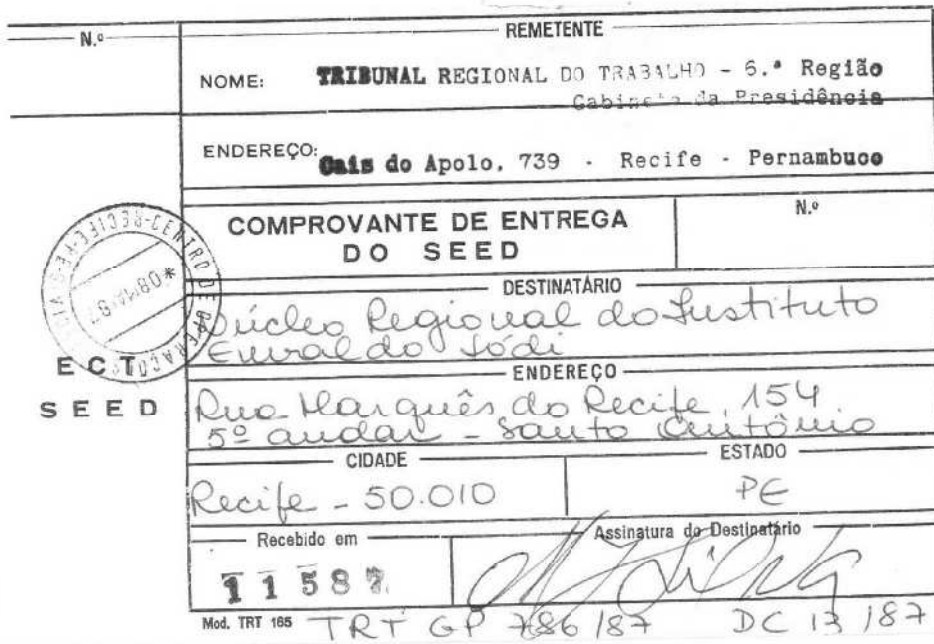 N.º
REMETENTE
NOME: TRIBUNAL REGIONAL DO TRABALHO - 6.ª Região
Gabinete da Presidência
ENDEREÇO: Cais do Apolo, 739 - Recife - Pernambuco
COMPROVANTE DE ENTREGA
DO SEED
N.º
DESTINATÁRIO
Núcleo Regional do Instituto
Euvaldo Lódi
ENDEREÇO
Rua Marquês do Recife, 154
5º andar - Santo Antônio
CIDADE
ESTADO
Recife - 50.010
PE
Recebido em
Assinatura do Destinatário
11 5 87
Mod. TRT 165
TRT GP 786/87 DC 13/87
ECT
SEED
RECIFE-PE
CENTRO DE OPERAÇÕES